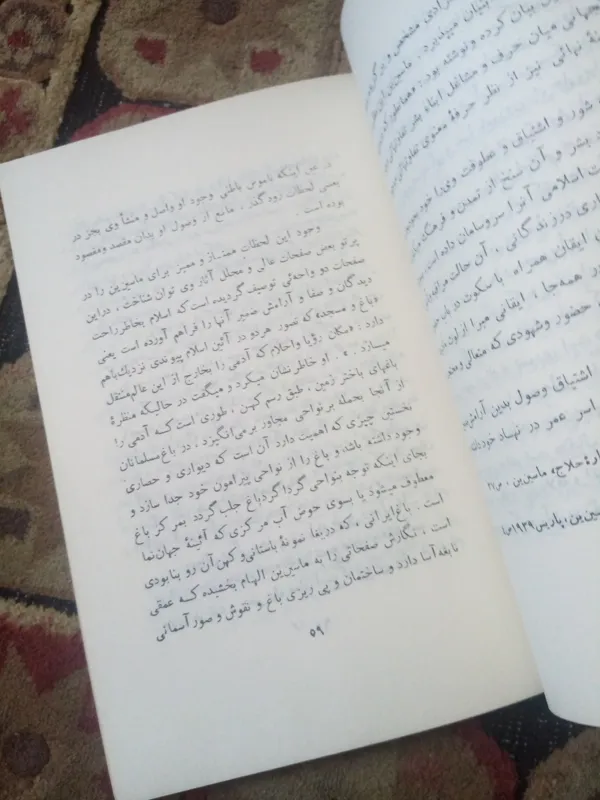 در عین اینکه ناموس باطنی وجود او واصل و منشأ وی بجز در
بعضی لحظات زودگذر ، مانع از وصول او بدان مقصد ومقصود
بوده است .
وجود این لحظات ممتاز و ممیز برای ماسین‌ین را در
پرتو بعض صفحات عالی و مجلل آثار وی توان شناخت ، دراین
صفحات دو واحه‌ئی توصیف گردیده است که اسلام بخاطر راحت
دیدگان و صفا و آرامش ضمیر آنها را فراهم آورده است یعنی
دباغ و مسجده که تصور هردو در آئین اسلام پیوندی نزدیك باهم
دارد : «مکان رؤیا واحلام که آدمی را بخارج از این عالم منتقل
میسازد . » . او خاطر نشان میکرد و میگفت در حالیکه منظرهٔ
باغهای باختر زمین ، طبق رسم کهن ، طوری است کـه آدمی را
از آنجا بحمله بر نواحی مجاور بر می‌انگیزد ، در باغ مسلمانان
نخستین چیزی که اهمیت دارد آن است که دیواری و حصاری
وجود داشته باشد و باغ را از نواحی پیرامون خود جدا سازد و
بجای اینکه توجه بنواحی گرداگرد باغ جلب گردد بمرکز باغ
معطوف میشود یا بسوی حوض آب مرکزی که آئینهٔ جهان‌نما
است . باغ ایرانی ، که دریغا نمونهٔ باستانی و کهن آن رو بنابودی
است ، نگارش صفحاتی را به ماسین‌ین الهام بخشیده کـه عمقی
نابغه‌آسا دارد و ساختمان و پی ریزی باغ و نقوش و صور آسمانی
۵۹
بنیان میپذیرد . ماسین‌ین این
بیان کرده و نوشته بود : «همانطور که
جهانی میان حرف و مشاغل ابناء بشر
نهائی نیز از نظر حرفهٔ معنوی
شور و اشتیاق و عطوفت وی را خود
بشر و آن سنخ از تمدن و فرهنگ
اسلامی آنرا سر و سامان داده است
درزندگانی ، آن حالت
ایقان همراه با سکوت در
در همه‌جا ، ایقانی مبرا از لون
حضور وشهودی که متعالی
اشتیاق وصول بدین
اسر عمر در نهاد خود
حلاج، ماسین‌ین ، ص
ین، پاریس ۱۹۲۹